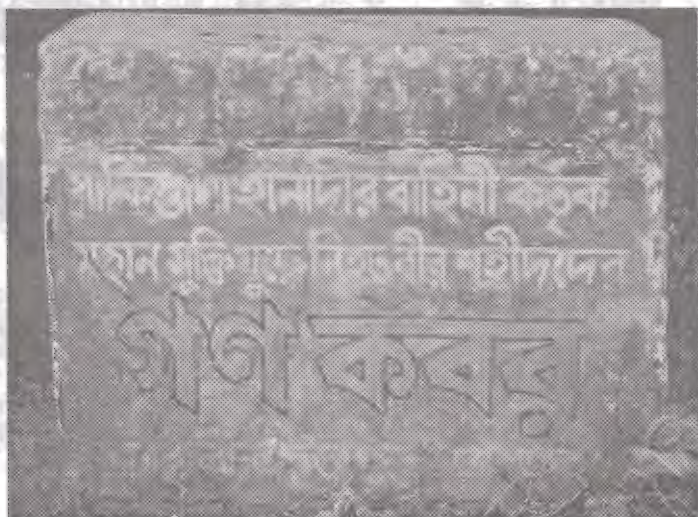 পাকিস্তানী হানাদার বাহিনী কর্তৃক
মহান মুক্তি যুদ্ধে নিহত বীর শহীদদের
গণ কবর